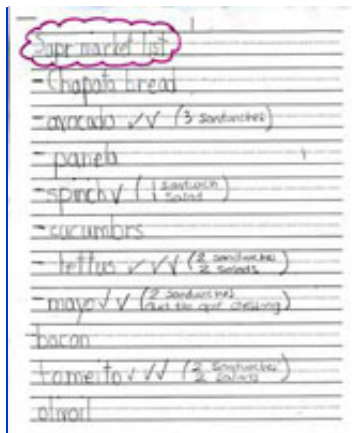 Supr market list
- Chapata bread
- avocado ✓✓ (3 sandwiches)
- panela
- spinch ✓ (1 sandwich
1 salad)
- cucumbrs
- lettus ✓✓✓ (2 sandwiches
2 salads)
- mayo ✓✓ (2 sandwiches
dressing)
bacon
tomeito ✓✓✓ (2 sandwiches
2 salads)
olivoil